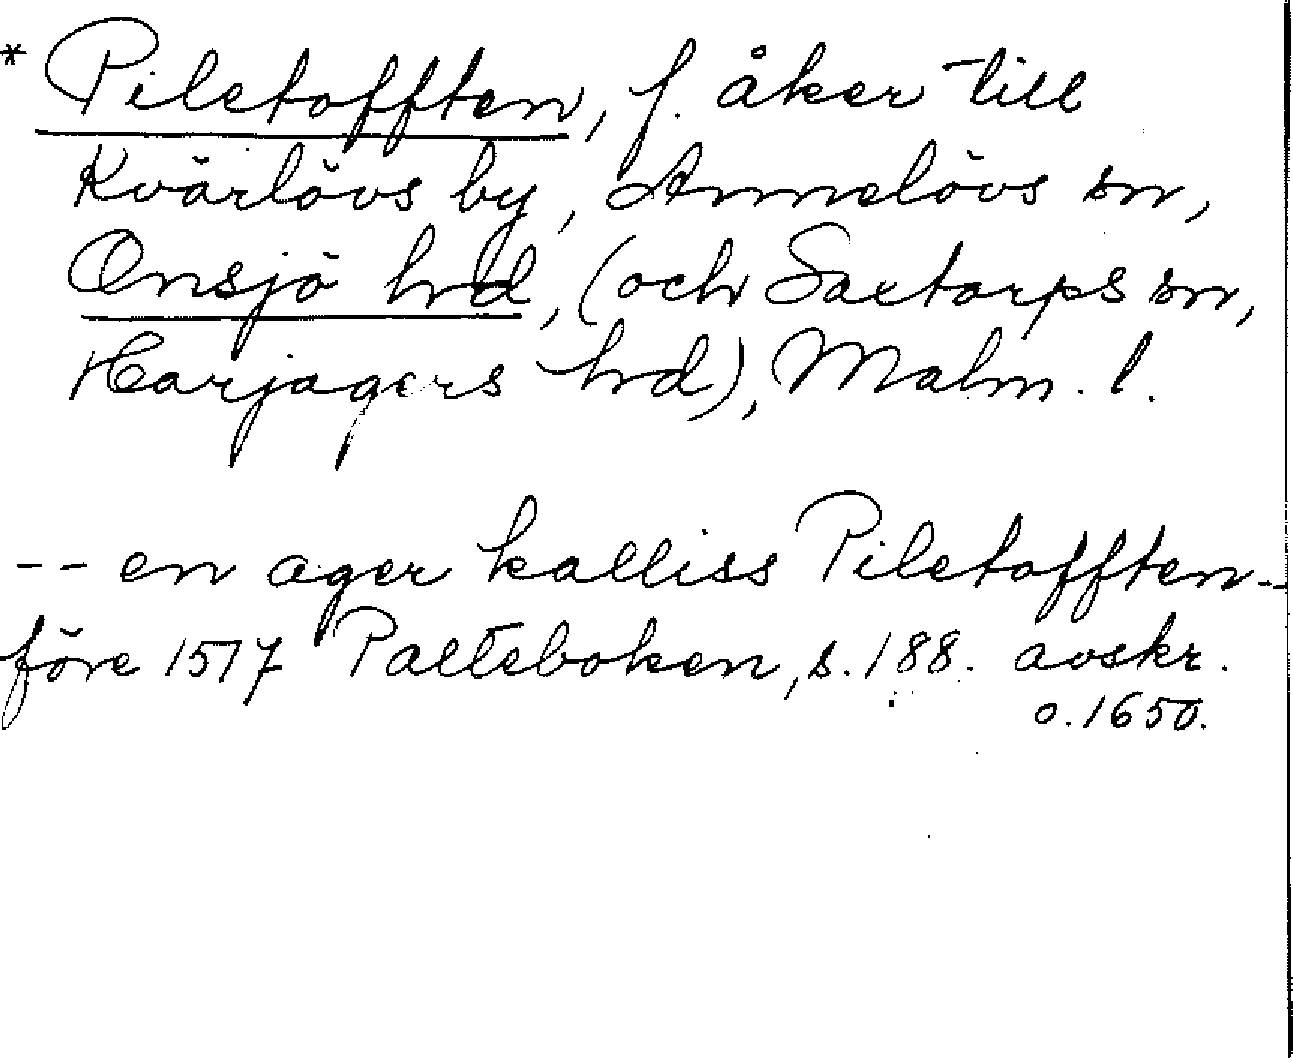 * Piletofften, f. åker till
Kvärlövs by, Annelövs sn,
Onsjö hrd, (och Saxtorps sn,
Harjagers hrd), Malm. l.
-- en ager kalliss Piletofften--
före 1517 Palteboken, s. 188. avskr.
o. 1650.